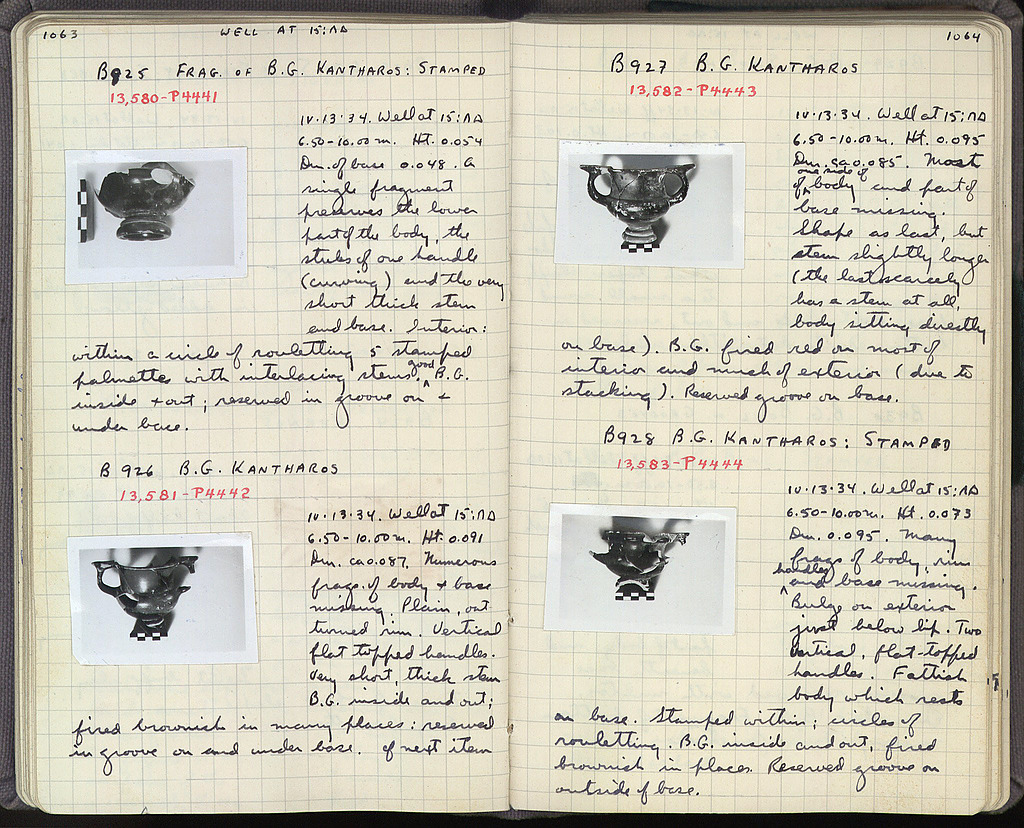 1063 WELL AT 15:ΛΔ
B925 FRAG. OF B.G. KANTHAROS: STAMPED
13,580-P4441
IV.13.34. Well at 15:ΛΔ
6.50-10.00 m. Ht. 0.054
Dm. of base 0.048. A
single fragment
preserves the lower
part of the body, the
stubs of one handle
(curving) and the very
short thick stem
and base. Interior:
within a circle of rouletting 5 stamped
palmettes with interlacing stems. good B.G.
inside + out; reserved in groove on +
under base.
B926 B.G. KANTHAROS
13,581-P4442
IV.13.34. Well at 15:ΛΔ
6.50-10.00 m. Ht. 0.091
Dm. ca 0.087. Numerous
frags. of body + base
missing. Plain, out
turned rim. Vertical
flat topped handles.
Very short, thick stem
B.G. inside and out;
fired brownish in many places: reserved
in groove on and under base. cf next item
1064
B927 B.G. KANTHAROS
13,582-P4443
IV.13.34. Well at 15:ΛΔ
6.50-10.00 m. Ht. 0.095
Dm. ca 0.085. Most
one side of
of body and part of
base missing.
Shape as last, but
stem slightly longer
(the last scarcely
has a stem at all,
body sitting directly
on base). B.G. fired red on most of
interior and much of exterior (due to
stacking). Reserved groove on base.
B928 B.G. KANTHAROS: STAMPED
13,583-P4444
IV.13.34. Well at 15:ΛΔ
6.50-10.00 m. Ht. 0.073
Dm. 0.095. Many
frags of body, rim
handles
and base missing.
Bulge on exterior
just below lip. Two
vertical, flat-topped
handles. Fattish
body which rests
on base. Stamped within; circles of
rouletting. B.G. inside and out, fired
brownish in places. Reserved groove on
outside of base.